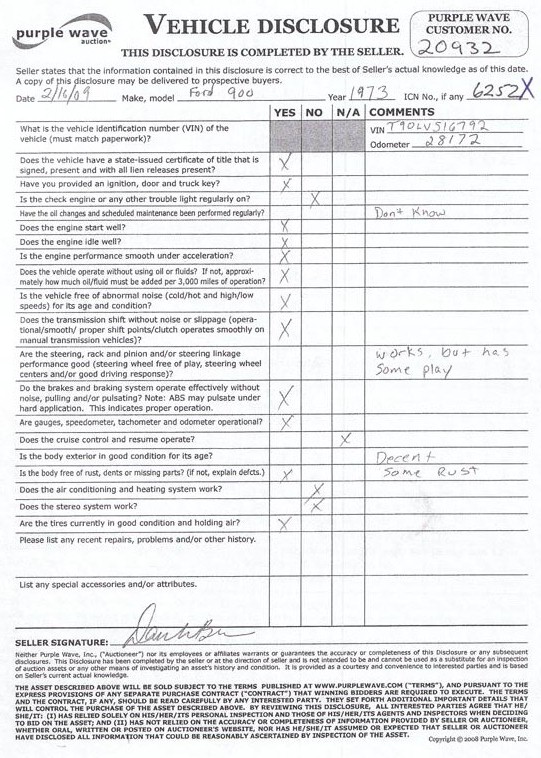 purple wave
auction™
VEHICLE DISCLOSURE
THIS DISCLOSURE IS COMPLETED BY THE SELLER.
PURPLE WAVE
CUSTOMER NO.
20932
Seller states that the information contained in this disclosure is correct to the best of Seller's actual knowledge as of this date.
A copy of this disclosure may be delivered to prospective buyers.
Date 2/16/09 Make, model Ford 900 Year 1973 ICN No., if any 6252X
YES NO N/A COMMENTS
What is the vehicle identification number (VIN) of the
vehicle (must match paperwork)?
VIN T90LVS16792
Odometer 28172
Does the vehicle have a state-issued certificate of title that is
signed, present and with all lien releases present? X
Have you provided an ignition, door and truck key? X
Is the check engine or any other trouble light regularly on? X
Have the oil changes and scheduled maintenance been performed regularly? Don't Know
Does the engine start well? X
Does the engine idle well? X
Is the engine performance smooth under acceleration? X
Does the vehicle operate without using oil or fluids? If not, approxi-
mately how much oil/fluid must be added per 3,000 miles of operation? X
Is the vehicle free of abnormal noise (cold/hot and high/low
speeds) for its age and condition? X
Does the transmission shift without noise or slippage (opera-
tional/smooth/ proper shift points/clutch operates smoothly on
manual transmission vehicles)? X
Are the steering, rack and pinion and/or steering linkage
performance good (steering wheel free of play, steering wheel
centers and/or good driving response)?
works, but has
some play
Do the brakes and braking system operate effectively without
noise, pulling and/or pulsating? Note: ABS may pulsate under
hard application. This indicates proper operation. X
Are gauges, speedometer, tachometer and odometer operational? X
Does the cruise control and resume operate? X
Is the body exterior in good condition for its age? Decent
Is the body free of rust, dents or missing parts? (if not, explain defcts.) X Some Rust
Does the air conditioning and heating system work? X
Does the stereo system work? X
Are the tires currently in good condition and holding air? X
Please list any recent repairs, problems and/or other history.
List any special accessories and/or attributes.
SELLER SIGNATURE:
Neither Purple Wave, Inc., ("Auctioneer") nor its employees or affiliates warrants or guarantees the accuracy or completeness of this Disclosure or any subsequent
disclosures. This Disclosure has been completed by the seller or at the direction of seller and is not intended to be and cannot be used as a substitute for an inspection
of auction assets or any other means of investigating an asset's history and condition. It is provided as a courtesy and convenience to interested parties and is based
on Seller's current actual knowledge.
THE ASSET DESCRIBED ABOVE WILL BE SOLD SUBJECT TO THE TERMS PUBLISHED AT WWW.PURPLEWAVE.COM ("TERMS"), AND PURSUANT TO THE
EXPRESS PROVISIONS OF ANY SEPARATE PURCHASE CONTRACT ("CONTRACT") THAT WINNING BIDDERS ARE REQUIRED TO EXECUTE. THE TERMS
AND THE CONTRACT, IF ANY, SHOULD BE READ CAREFULLY BY ANY INTERESTED PARTY. THEY SET FORTH ADDITIONAL IMPORTANT DETAILS THAT
WILL CONTROL THE PURCHASE OF THE ASSET DESCRIBED ABOVE. BY REVIEWING THIS DISCLOSURE, ALL INTERESTED PARTIES AGREE THAT HE/
SHE/IT: (I) HAS RELIED SOLELY ON HIS/HER/ITS PERSONAL INSPECTION AND THOSE OF HIS/HER/ITS AGENTS AND INSPECTORS WHEN DECIDING
TO BID ON THE ASSET; AND (II) HAS NOT RELIED ON THE ACCURACY OR COMPLETENESS OF INFORMATION PROVIDED BY SELLER OR AUCTIONEER,
WHETHER ORAL, WRITTEN OR POSTED ON AUCTIONEER'S WEBSITE, NOR HAS HE/SHE/IT ASSUMED OR EXPECTED THAT SELLER OR AUCTIONEER
HAVE DISCLOSED ALL INFORMATION THAT COULD BE REASONABLY ASCERTAINED BY INSPECTION OF THE ASSET.
Copyright © 2008 Purple Wave, Inc.